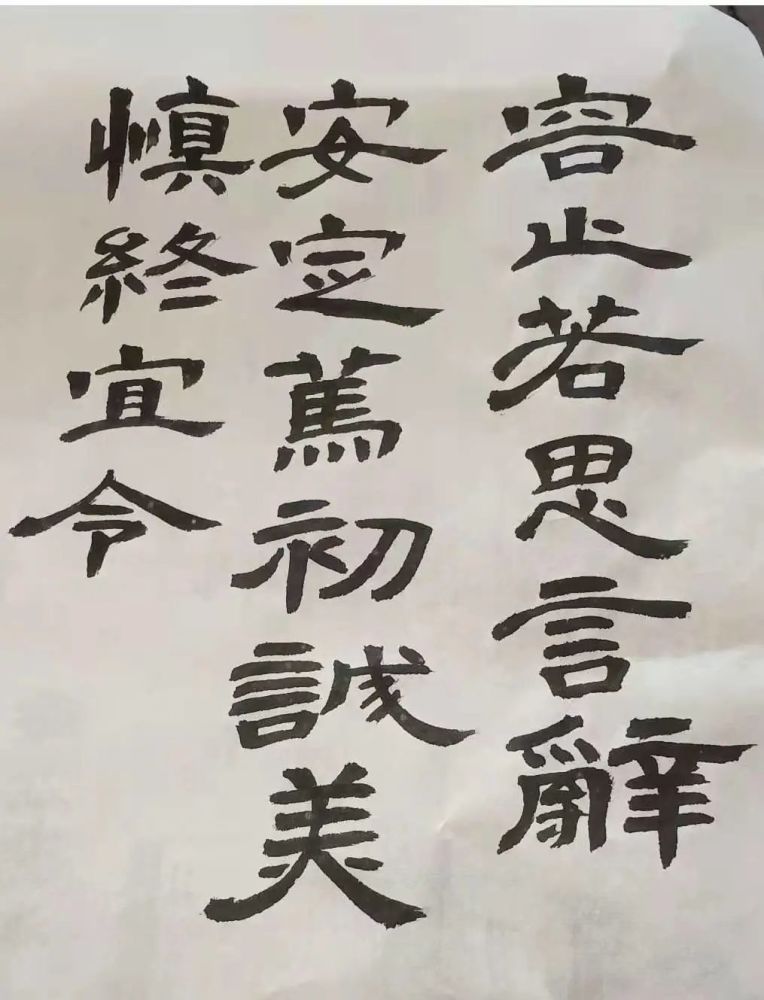 容止若思言辭
安定篤初誠美
慎終宜令